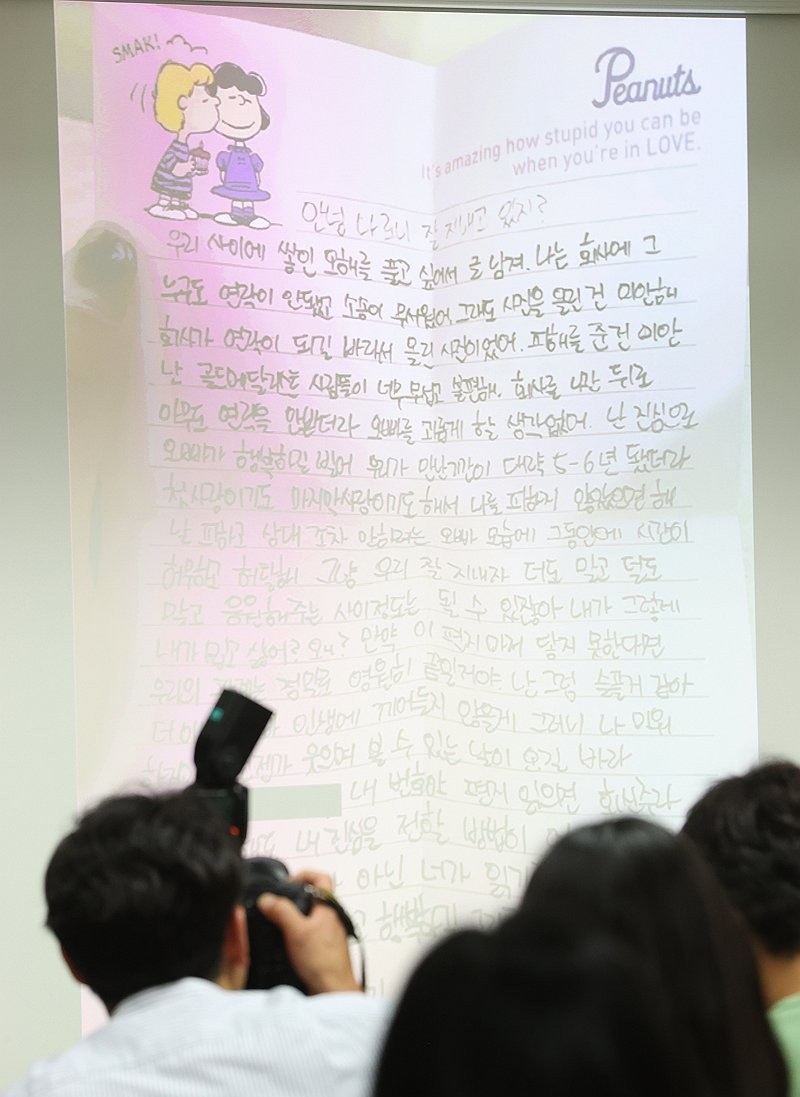 SMAK!
Peanuts
It's amazing how stupid you can be
when you're in LOVE.
안녕 나 잘 지내고 있지?
우리 사이에 쌓인 오해를 풀고 싶어서 글 남겨. 나는 회사에 그
누구도 연락이 안됐고 소송이 무서웠어. 그래도 사진을 올린 건 미안해
회사가 연락이 되길 바라서 올린 사진이었어. 피해를 준건 미안
난 골드메달리스트 사람들이 너무 무섭고 불편해. 회사를 나간 뒤로
아무도 연락을 안받더라 오빠를 괴롭게 할 생각없어. 난 진심으로
오빠가 행복하길 빌어 우리가 만난기간이 대략 5-6년 됐더라
첫사랑이기도 마지막사랑이기도 해서 나를 피하지 않았으면 해
날 피하고 상대조차 안하려는 오빠 모습에 그동안에 시간이
허무하고 허탈해 그냥 우리 잘 지내자 더도 말고 덜도
말고 응원해주는 사이정도는 될 수 있잖아 내가 그렇게
내가 밉고 싫어? 왜? 만약 이 편지마저 닿지 못한다면
우리의 관계는 정말로 영원히 끝일거야. 난 그럼 슬플거 같아
더 인생에 끼어들지 않을게 그러니 나 미워
웃으며 볼 수 있는 날이 오길 바라
내 번호야 편지 읽으면 회신주라
내 진심을 전할 방법이
아닌 너가 읽기
행복